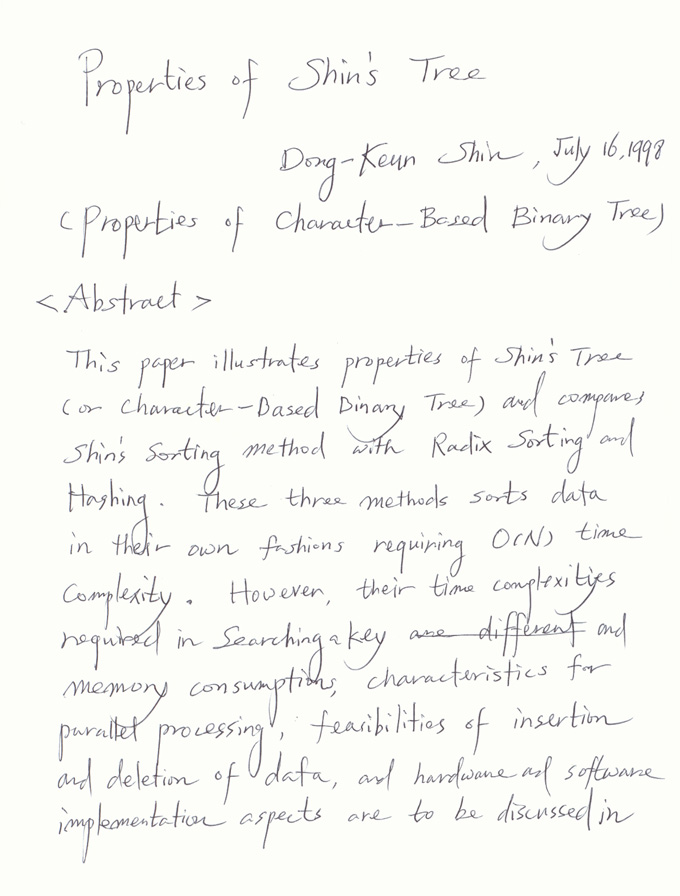 Properties of Shin's Tree
Dong-Keun Shin, July 16, 1998
(Properties of Character-Based Binary Tree)
<Abstract>
This paper illustrates properties of Shin's Tree
(or Character-Based Binary Tree) and compares
Shin's Sorting method with Radix Sorting and
Hashing. These three methods sorts data
in their own fashions requiring O(N) time
Complexity. However, their time complexities
required in Searching a key are different and
memory consumptions, characteristics for
parallel processing, feasibilities of insertion
and deletion of data, and hardware and software
implementation aspects are to be discussed in